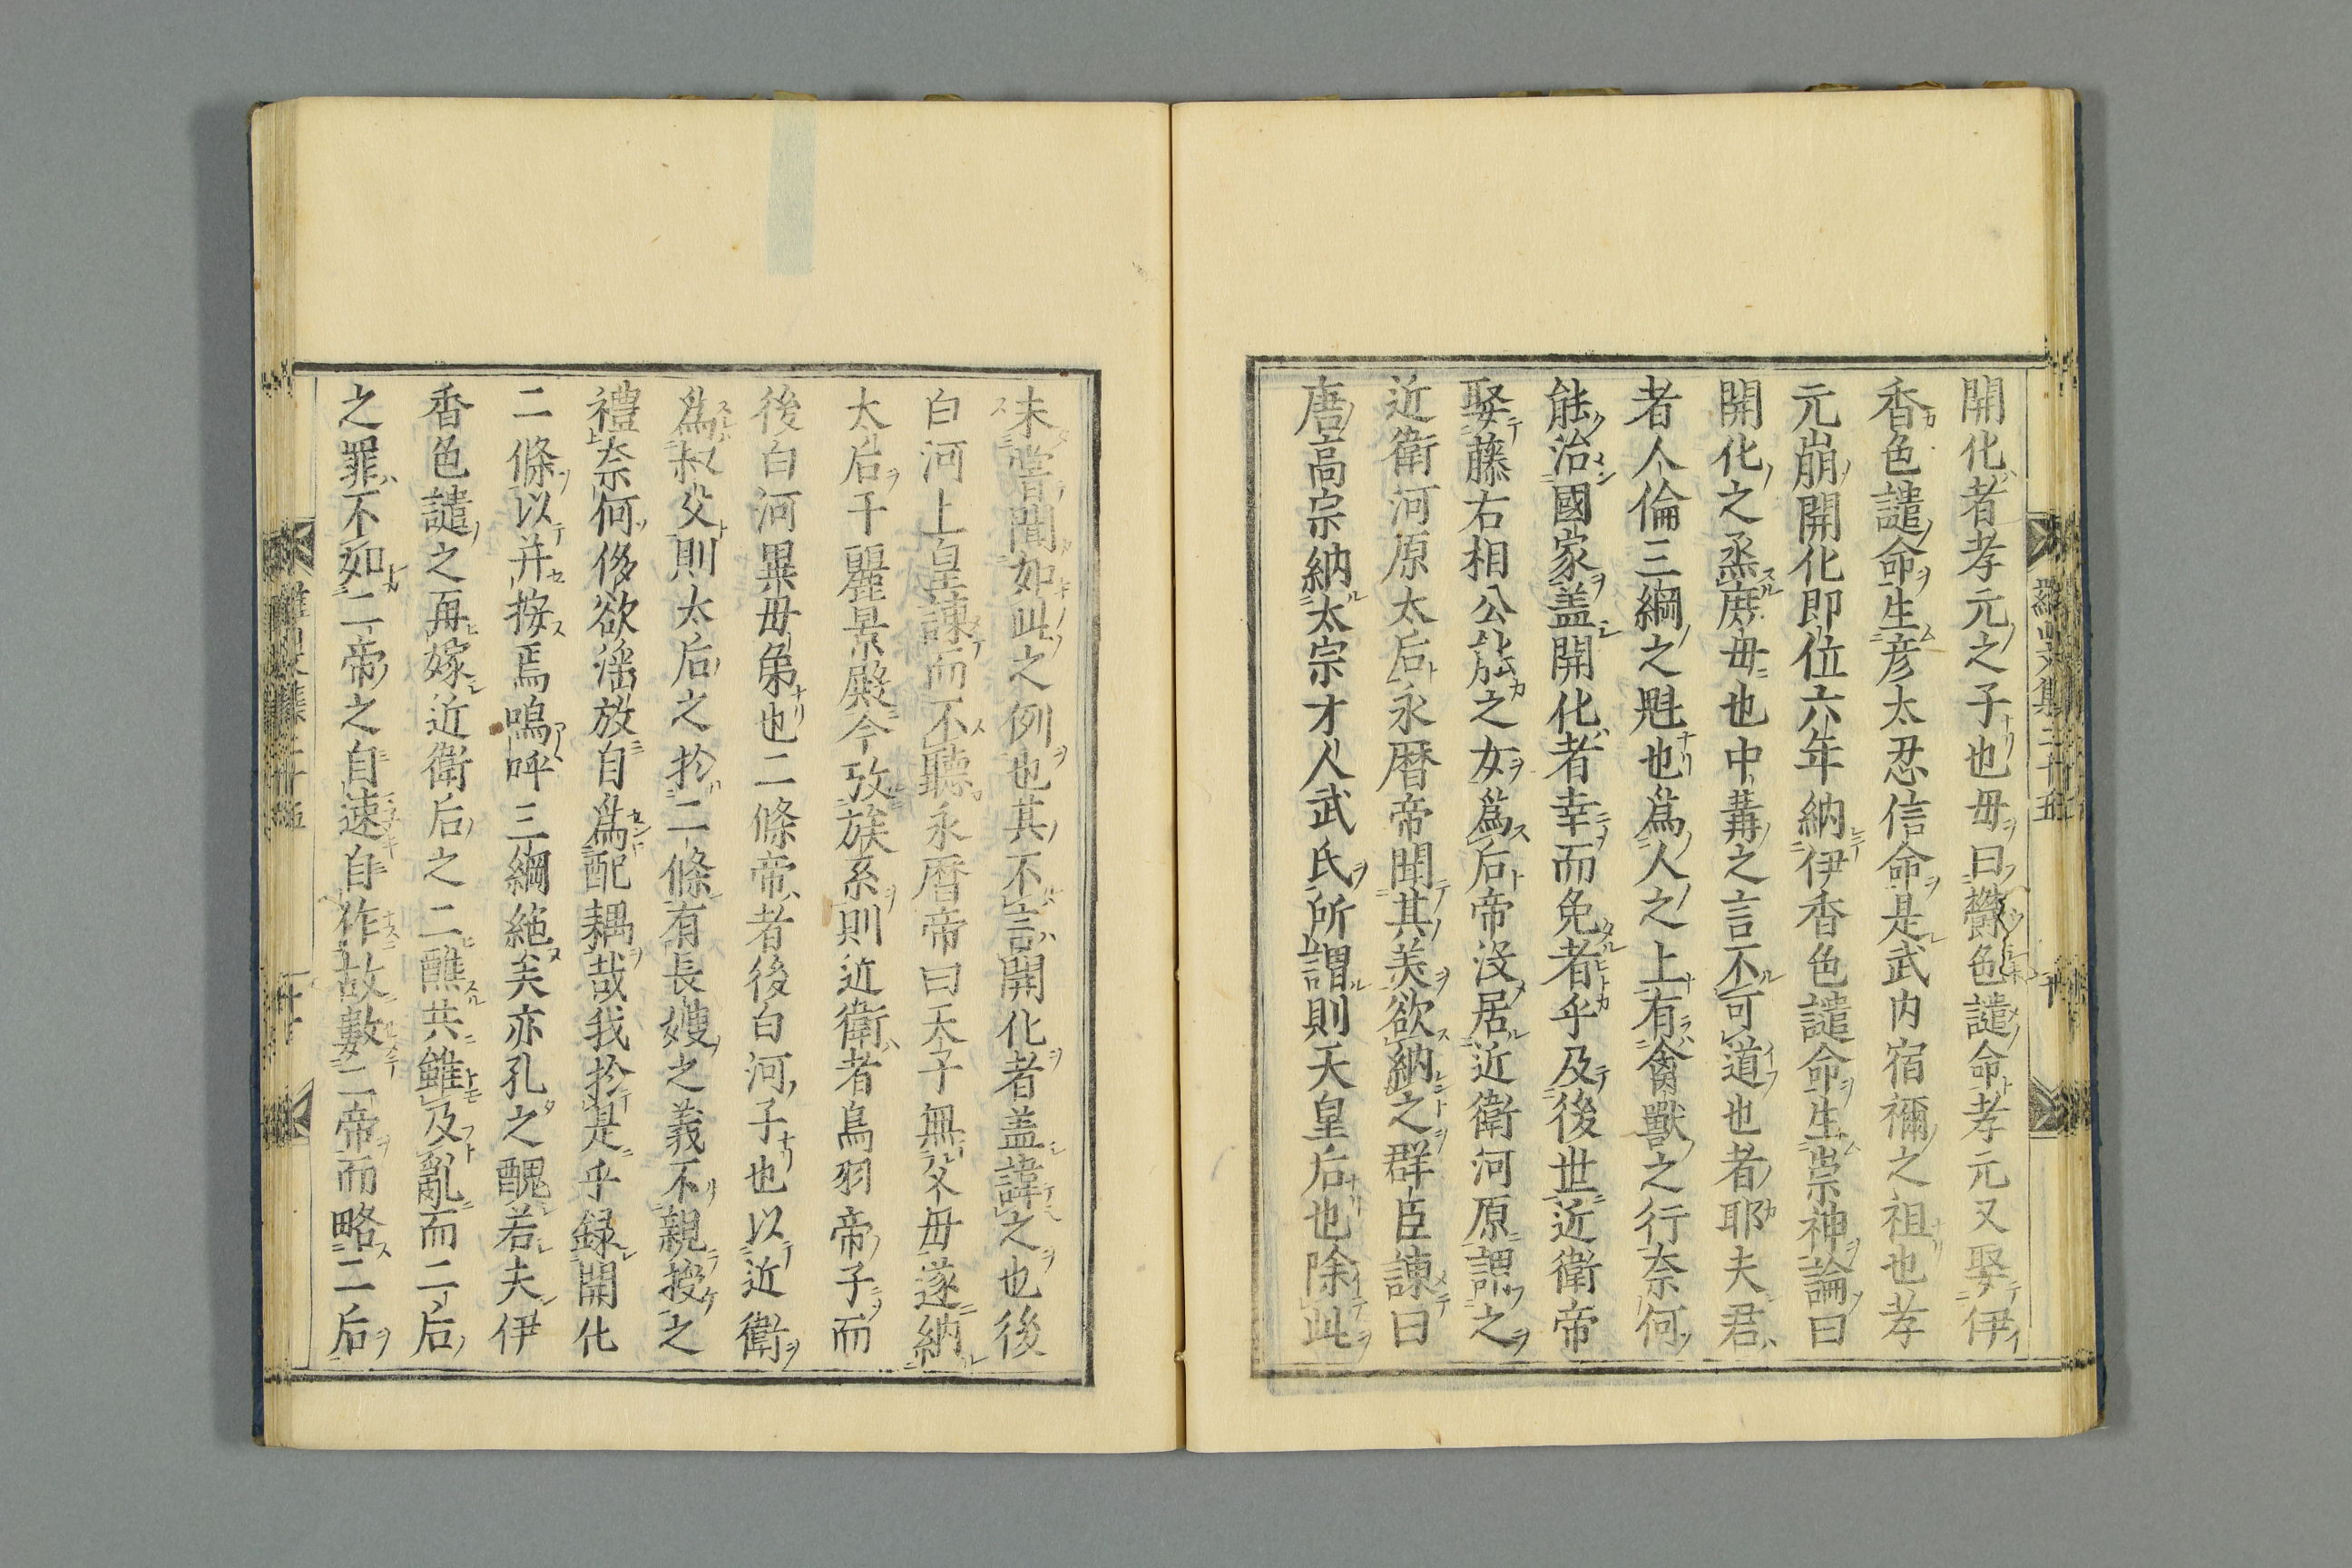 開化者孝元之子也母曰欝色謎命孝元又娶伊
香色謎命生彦太忍信命是武内宿禰之祖也孝
元崩開化即位六年納伊香色謎命生崇神論曰
開化之烝庶母也中冓之言不可道也者耶夫君
者人倫三綱之魁也爲人之上有禽獸之行奈何
能治國家盖開化者幸而免者乎及後世近衛帝
娶藤右相公能之女爲后帝没居近衛河原謂之
近衛河原太后永暦帝聞其美欲納之群臣諫曰
唐高宗納太宗才人武氏所謂則天皇后也除此
未嘗聞如此之例也其不言開化者盖諱之也後
白河上皇諫而不聽永暦帝曰天子無父母遂納
太后于麗景殿今攷族系則近衛者鳥羽帝子而
後白河異母弟也二條帝者後白河子也以近衛
爲叔父則太后之於二條有長嫂之義不親授之
禮奈何侈欲滛放自爲配耦哉我於是乎録開化
二條以并按焉嗚呼三綱絶矣亦孔之醜若夫伊
香色謎之再嫁近衛后之二醮共雖及亂而二后
之罪不如二帝之自速自作故數二帝而略二后
羅山文集三十五